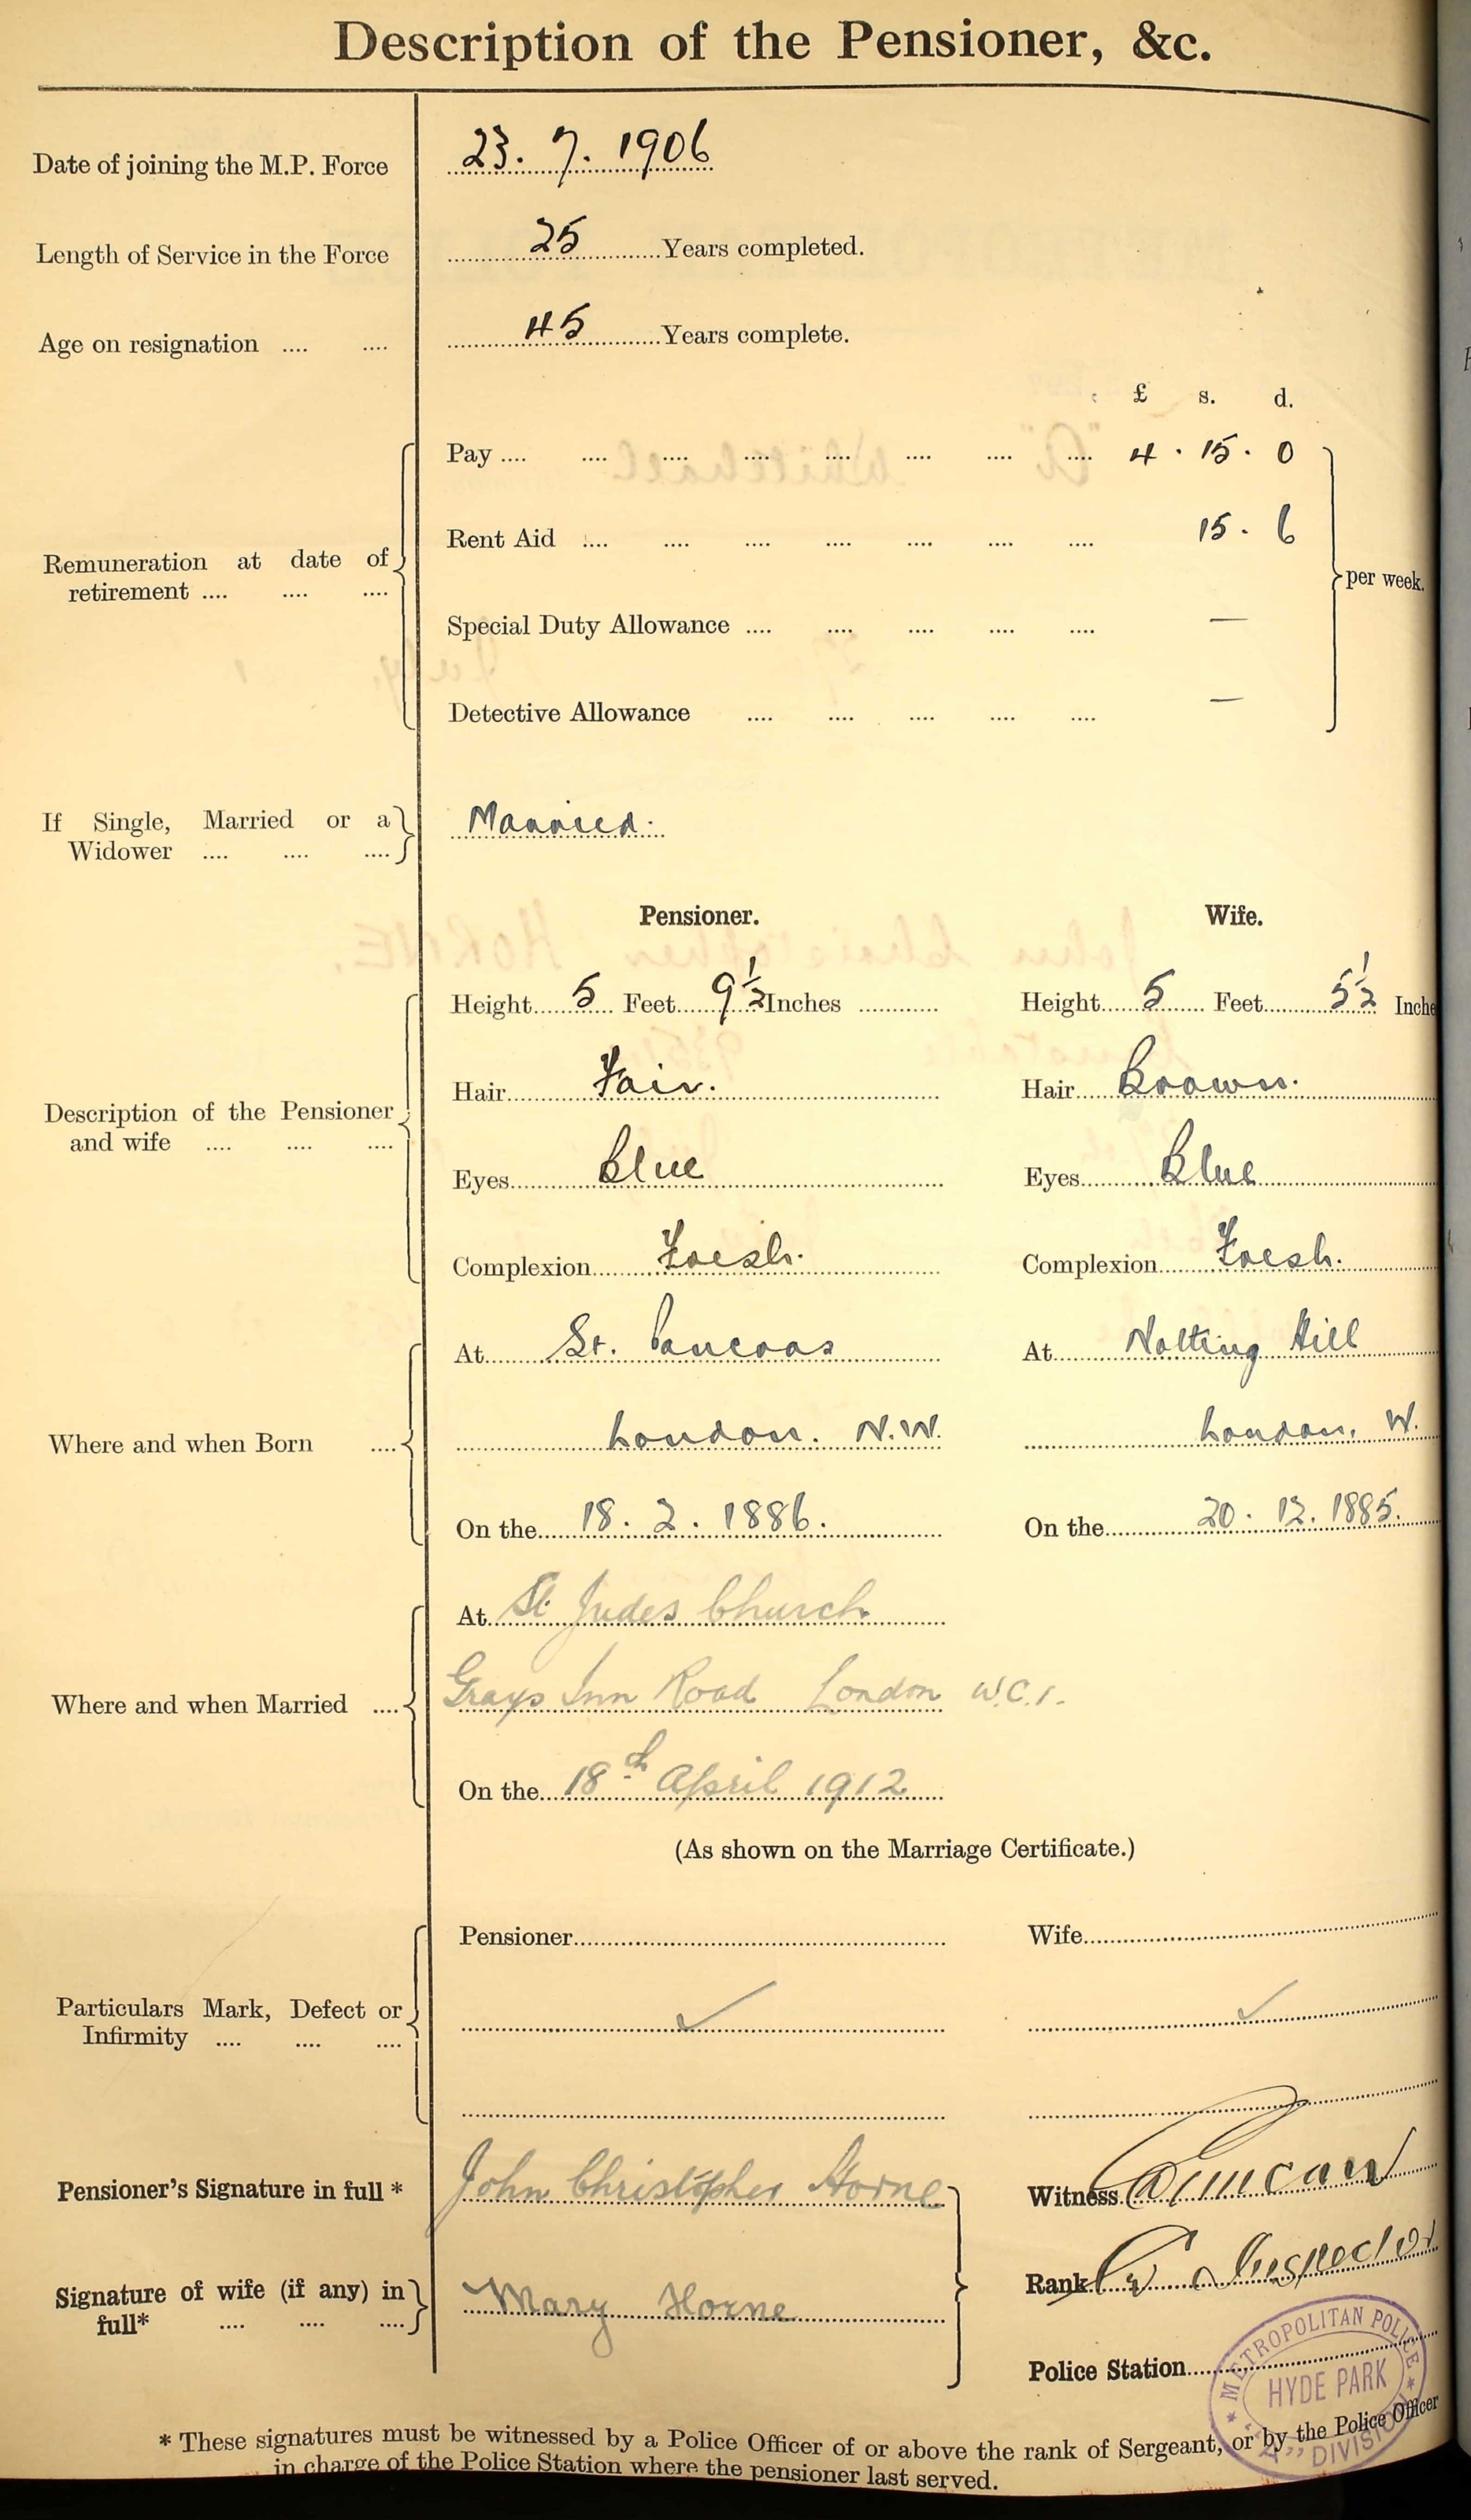 Description of the Pensioner, &c.
Date of joining the M.P. Force 23. 7. 1906
Length of Service in the Force 25 Years completed.
Age on resignation .... .... 45 Years complete.
£ s. d.
Pay .... .... .... .... .... .... .... .... 4 . 15 . 0
Rent Aid .... .... .... .... .... .... .... 15 . 6
Remuneration at date of
retirement .... .... .... per week.
Special Duty Allowance .... .... .... .... .... —
Detective Allowance .... .... .... .... .... —
If Single, Married or a
Widower .... .... .... Married.
Pensioner. Wife.
Height 5 Feet 9½ Inches Height 5 Feet 5½ Inche
Hair Fair. Hair Brown.
Description of the Pensioner
and wife .... .... ....
Eyes Blue Eyes Blue
Complexion Fresh. Complexion Fresh.
At St. Pancras At Notting Hill
Where and when Born .... London. N.W. London, W.
On the 18. 2. 1886. On the 20. 12. 1885.
At St Judes Church
Where and when Married .... Grays Inn Road London W.C.1.
On the 18th April 1912
(As shown on the Marriage Certificate.)
Pensioner Wife
Particulars Mark, Defect or
Infirmity .... .... .... ✓ ✓
Pensioner's Signature in full * John Christopher Horne Witness
Signature of wife (if any) in
full* .... .... .... Mary Horne Rank Inspector
Police Station
METROPOLITAN POLICE
HYDE PARK
"A" DIVISION
* These signatures must be witnessed by a Police Officer of or above the rank of Sergeant, or by the Police Officer
in charge of the Police Station where the pensioner last served.